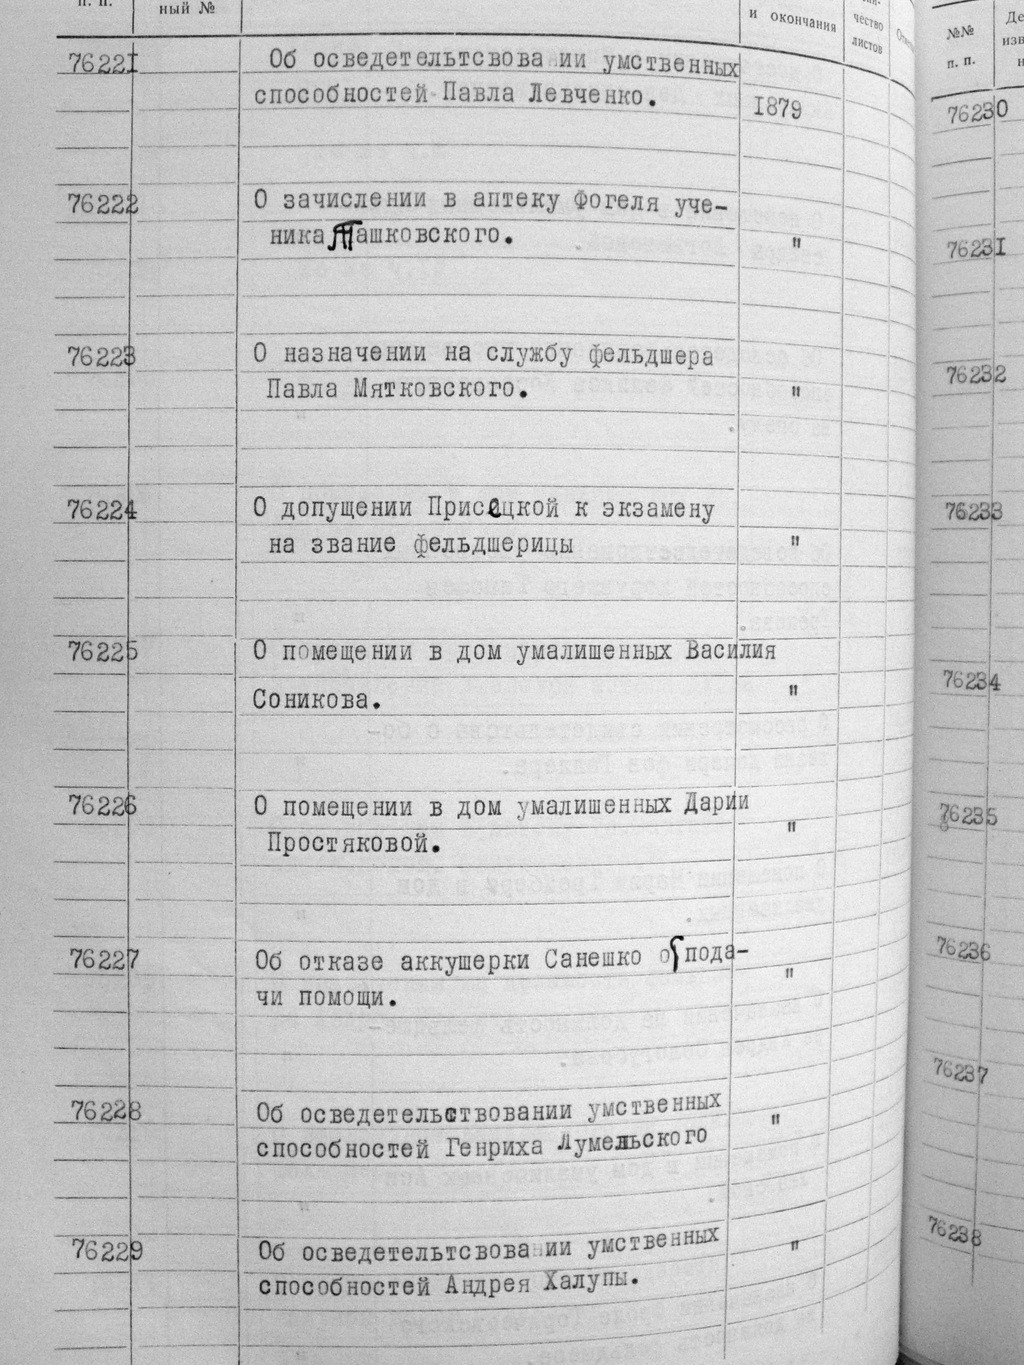 п. п.
ный №
и окончания
чество
листов
76221
Об осведетельтсвова ии умственных
способностей Павла Левченко.
1879
76222
О зачислении в аптеку Фогеля уче-
ника Пашковского.
"
76223
О назначении на службу фельдшера
Павла Мятковского.
"
76224
О допущении Присецкой к экзамену
на звание фельдшерицы
"
76225
О помещении в дом умалишенных Василия
Соникова.
"
76226
О помещении в дом умалишенных Дарии
Простяковой.
"
76227
Об отказе аккушерки Санешко от пода-
чи помощи.
"
76228
Об осведетельствовании умственных
способностей Генриха Лумельского
"
76229
Об осведетельтсвовании умственных
способностей Андрея Халупы.
"
№№
п. п.
76230
76231
76232
76233
76234
76235
76236
76237
76238